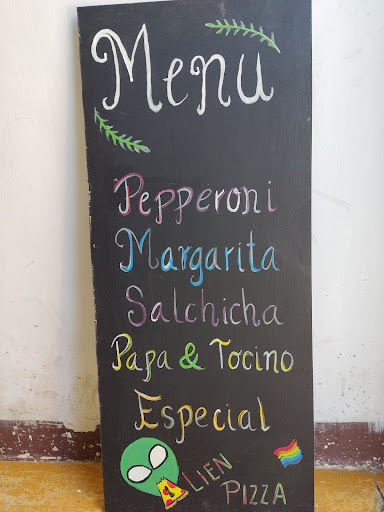 Menu
Pepperoni
Margarita
Salchicha
Papa & Tocino
Especial
ALIEN
PIZZA